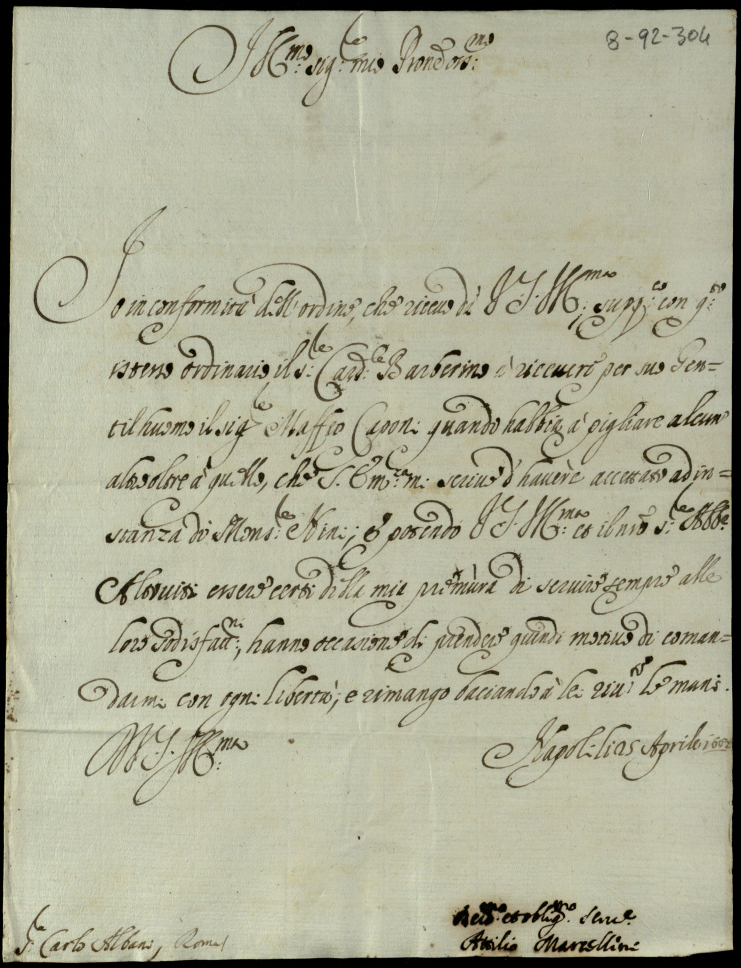 8-92-304
Ill.mo sig.r mio Pron Oss.mo
Io in conformità dell'ordine, che riceuo di V.S. Ill.ma supp.co con q.to
istesso ordinario, il s.r Card.le Barberino à riceuere per suo Gen=
til huomo il sig.r Maffeo Caponi quando habbia à pigliare alcun
altro oltre à quello, che S. Em.za mi scriue d'hauere accettato ad in=
stanza di Mons.re Nini; e potendo V.S. Ill.ma et il nro s.r Abb.e
Altouiti essere certi della mia premura di seruire sempre alle
loro sodisfatt.ni, hanno occasione di prendere quindi motiuo di coman=
darmi con ogni libertà; e rimango baciando à lei riu.te le mani.
Di V.S. Ill.ma
Napoli li 25 Aprile
S.r Carlo Albani, Roma
Deu.mo et oblig.mo Seru.re
Attilio Marcellini